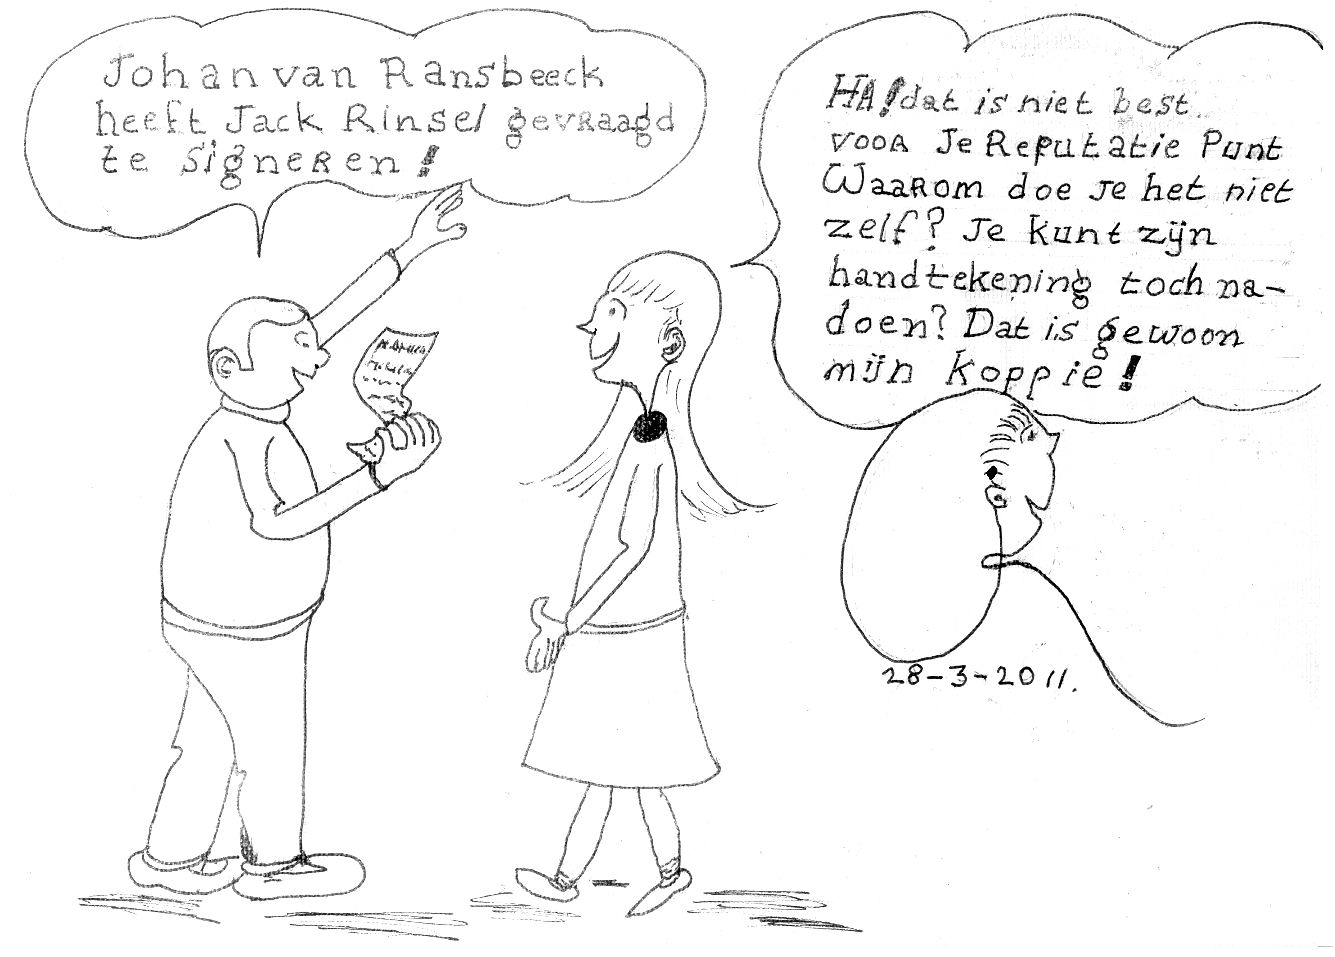 Johan van Ransbeeck
heeft Jack Rinsel gevraagd
te signeren!
HA! dat is niet best..
voor Je Reputatie Punt
Waarom doe Je het niet
zelf? Je kunt zijn
handtekening toch na-
doen? Dat is gewoon
mijn koppie!
28-3-2011.